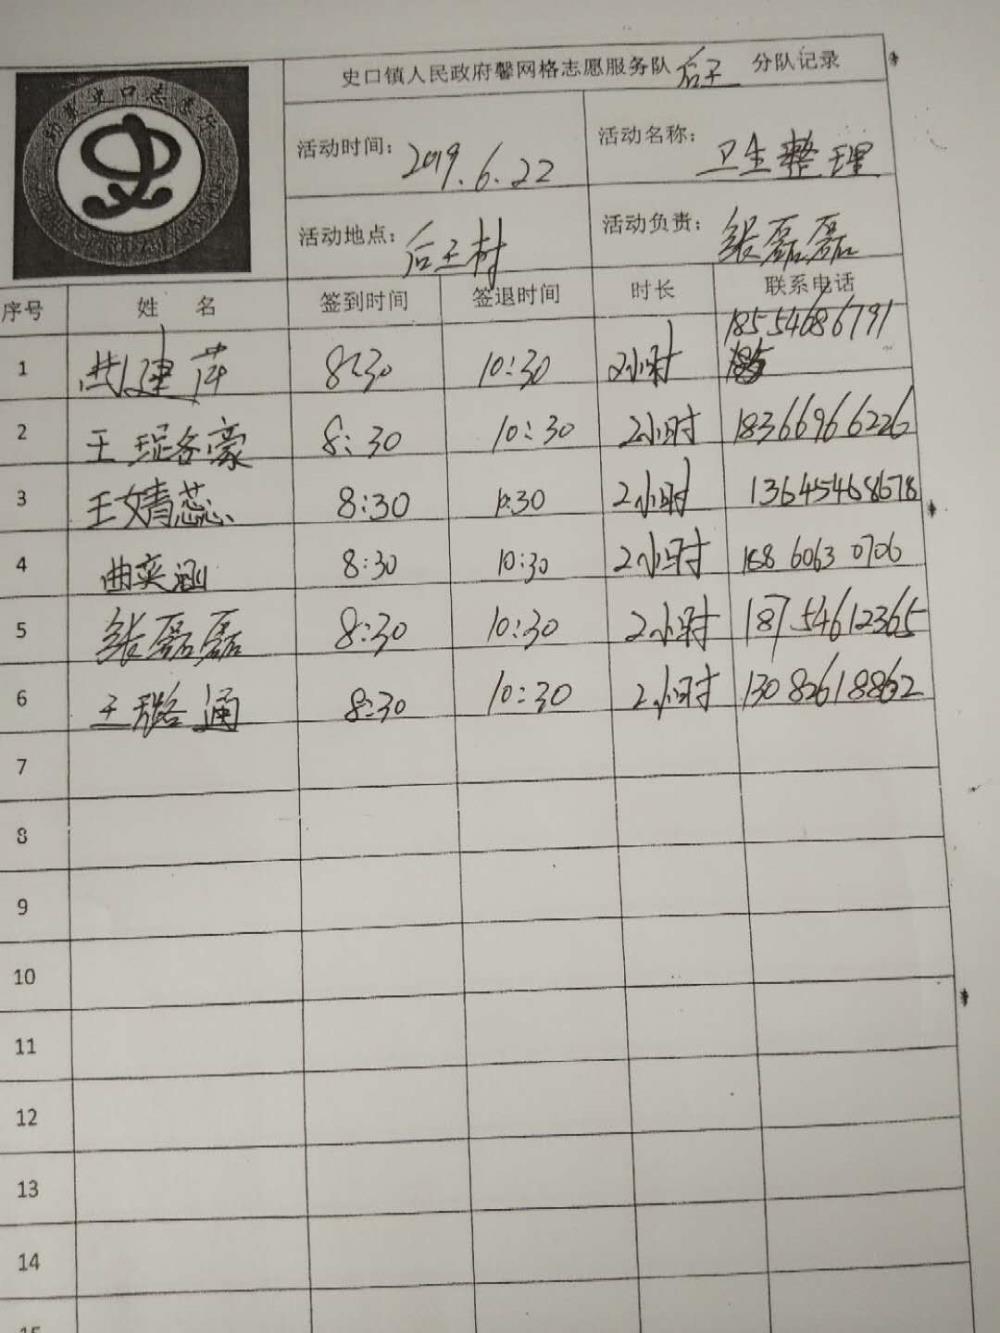 史口镇人民政府馨网格志愿服务队 后王 分队记录
活动时间： 2019.6.22 活动名称： 卫生整理
活动地点： 后王村 活动负责： 张磊磊
序号 姓 名 签到时间 签退时间 时长 联系电话
1 建萍 8:30 10:30 2小时 18554686791
2 王 豪 8:30 10:30 2小时 18366966226
3 王婧蕊 8:30 10:30 2小时 13645468678
4 曲奕涵 8:30 10:30 2小时 188 6063 0706
5 张磊磊 8:30 10:30 2小时 18754612365
6 王璐通 8:30 10:30 2小时 13082618862
7
8
9
10
11
12
13
14
15